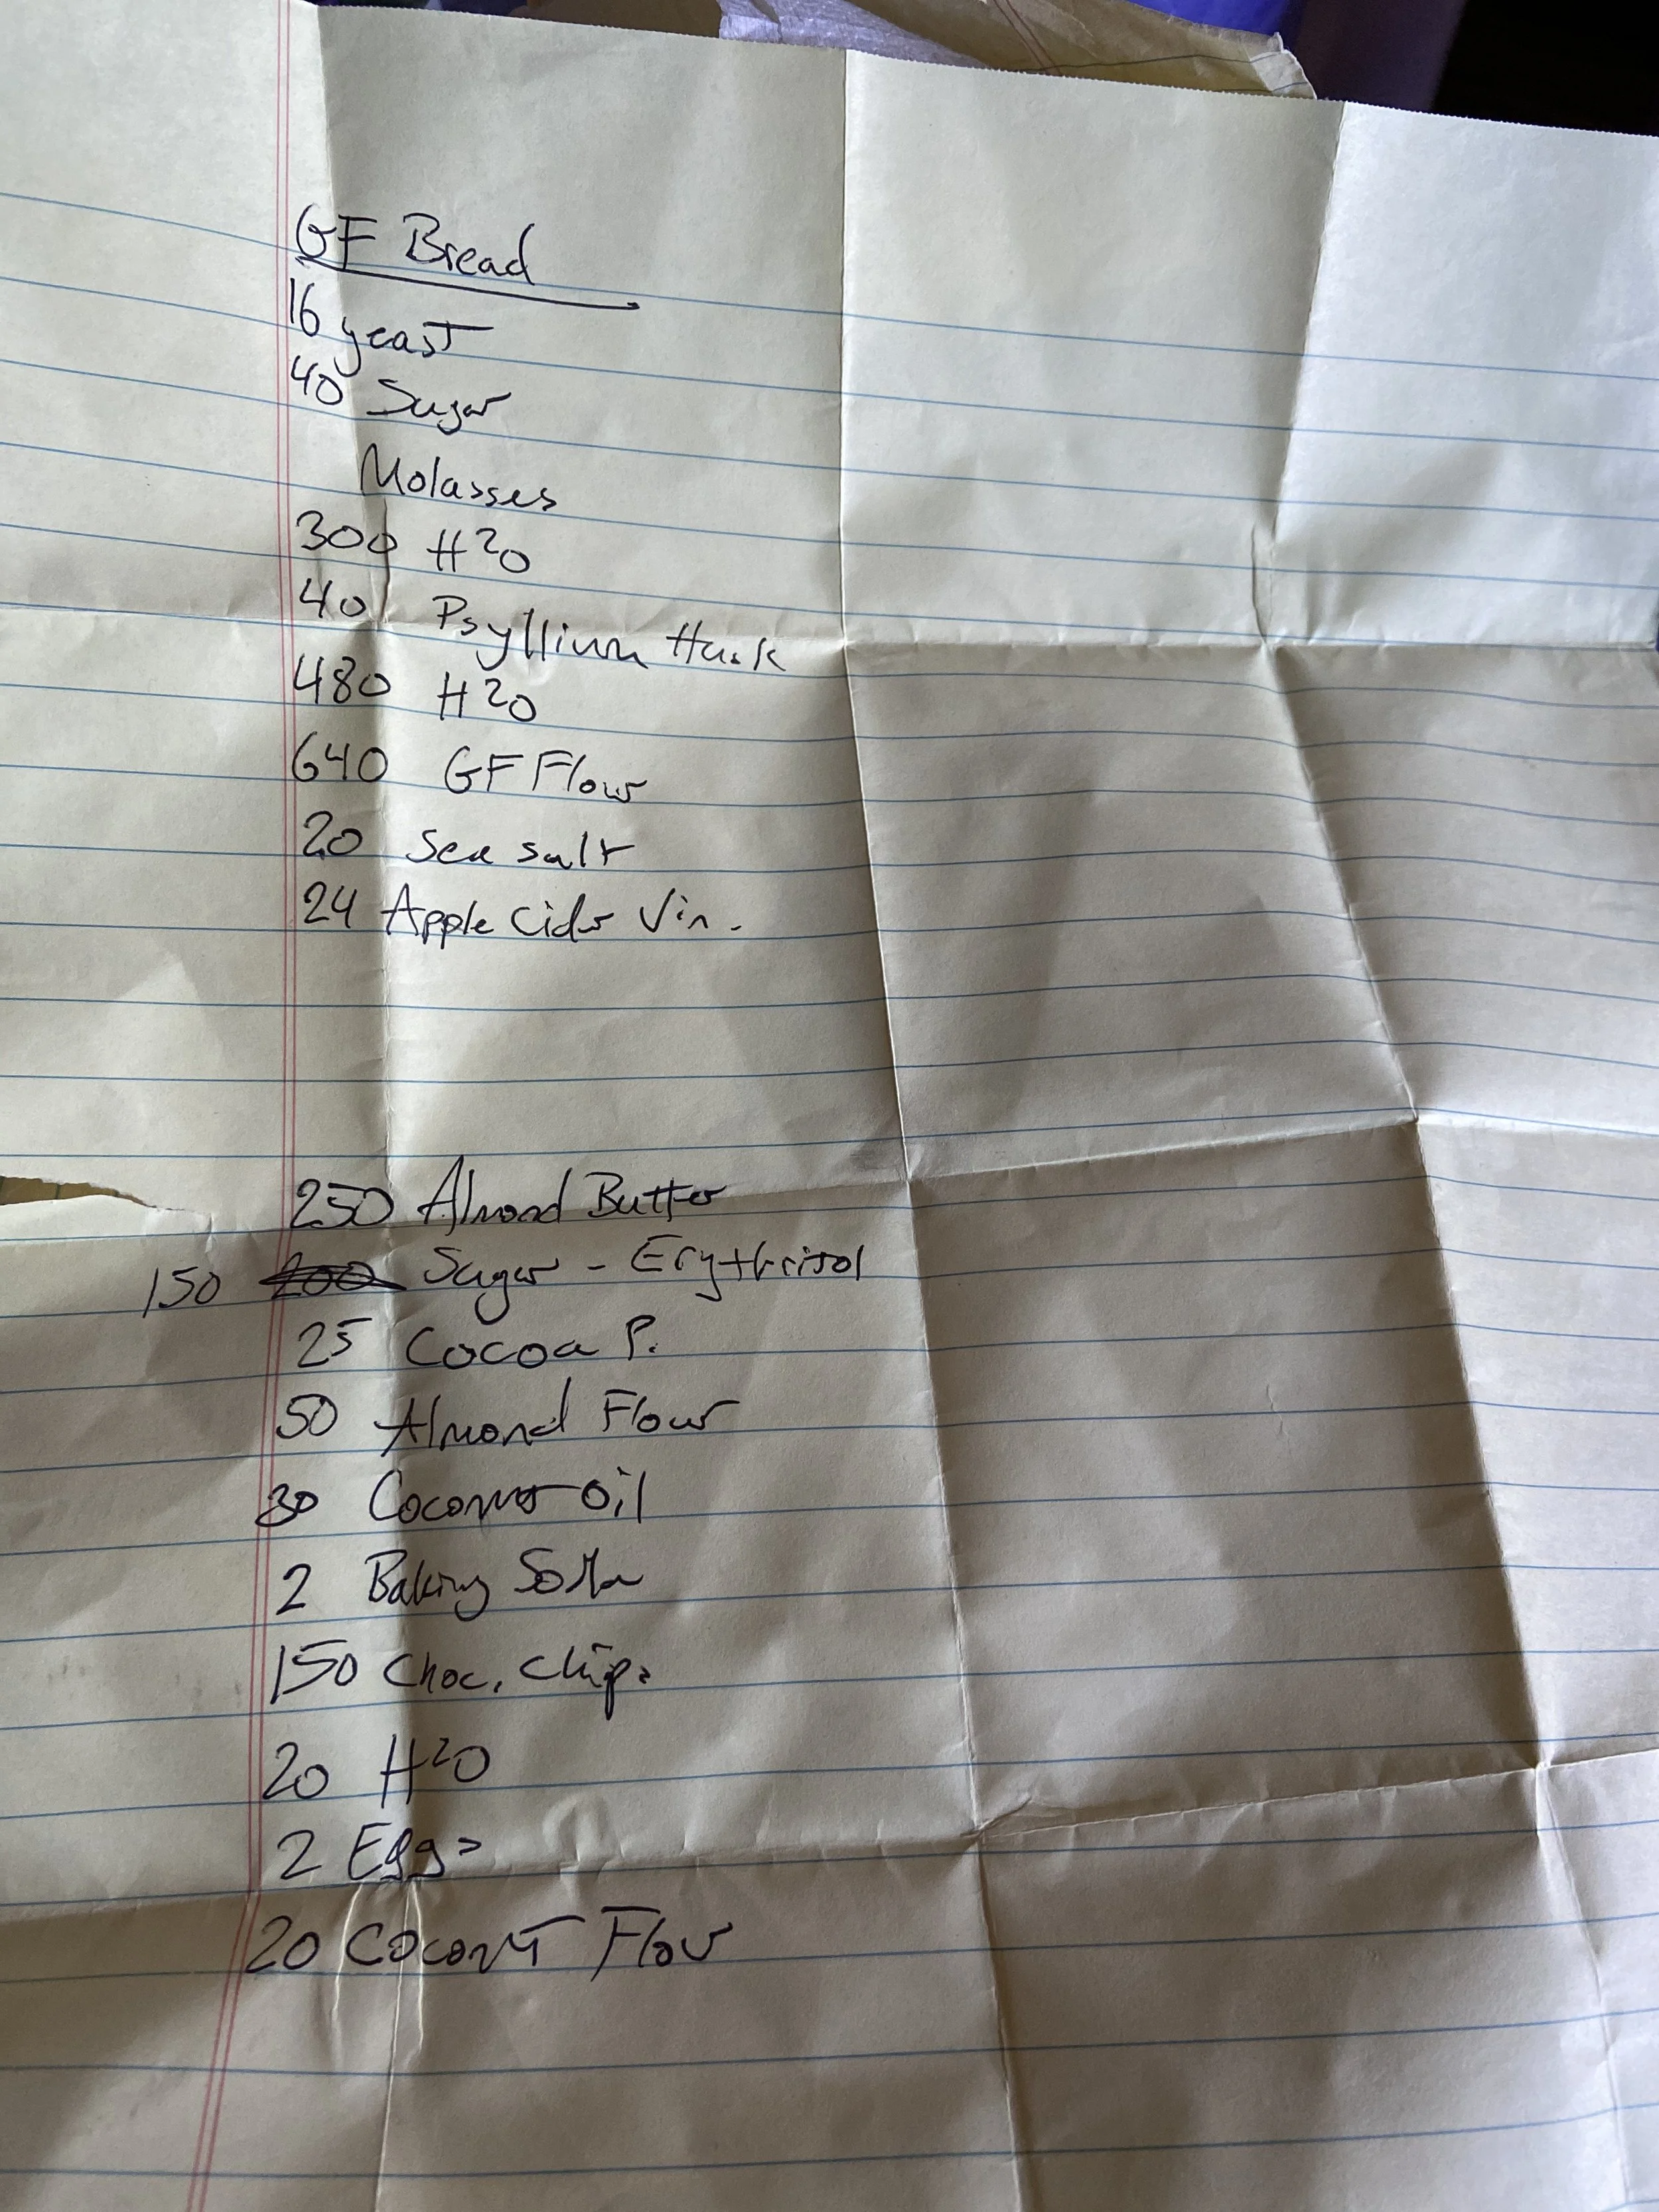 GF Bread
16 yeast
40 Sugar
Molasses
300 H2O
40 Psyllium Husk
480 H2O
640 GF Flour
20 Sea salt
24 Apple Cider Vin.
250 Almond Butter
150 200 Sugar - Erythritol
25 Cocoa P.
50 Almond Flour
30 Coconut Oil
2 Baking Soda
150 Choc. Chips
20 H2O
2 Eggs
20 Coconut Flour